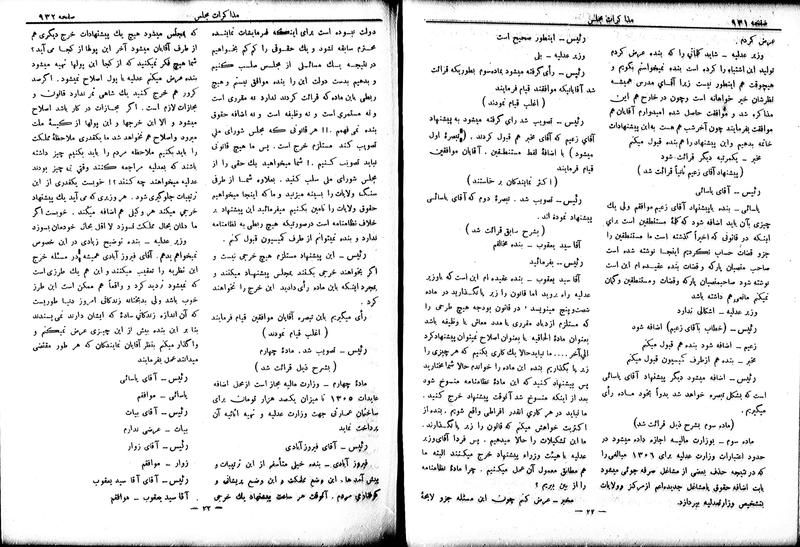 صفحه ۹۳۱
مذاکرات مجلس
عرض کردم.
وزیر عدلیه - شاید کلماتی را که بنده عرض کردم
تولید این اشتباه را کرده است بنده نمیخواستم بگویم و
هیچوقت هم اینطور نیست زیرا آقای مدرس همیشه
نظرشان خیر خواهانه است و چون در خارج هم این
مذاکره شد و موافقت حاصل شده امیدوارم آقایان هم
موافقت بفرمایند چون آخر شب هم هست به این پیشنهادات
خاتمه بدهیم و این پیشنهاد را هم بنده قبول میکنم
مخبر - یکمرتبه دیگر قرائت شود
(پیشنهاد آقای زعیم ثانیاً قرائت شد)
رئیس - آقای یاسائی
یاسائی - بنده با پیشنهاد آقای زعیم موافقم ولی یک
چیزی بآن باید اضافه شود که کلمهٔ مستنطقین است برای
اینکه در قانونی که اخیراً گذشته است ما مستنطقین را
جزو قضات حساب نکردیم اینجا نوشته شده است
صاحب منصبان پارکه و قضات بنده عقیده ام این است
نوشته شود صاحبمنصبان پارکه و قضات و مستنطقین و گمان
نمیکنم مانعی هم داشته باشد
وزیر عدلیه - اشکالی ندارد
رئیس - (خطاب بآقای زعیم) اضافه شود
زعیم - اضافه شود بنده هم قبول میکنم
مخبر - بنده هم از طرف کمیسیون قبول میکنم
رئیس - اضافه میشود دیگر پیشنهاد آقای یاسائی
است که بشکل تبصره خواهد شد بدواً بخود ماده رأی
میگیریم.
(ماده سوم بشرح ذیل قرائت شد)
ماده سوم - بوزارت مالیه اجازه داده میشود در
حدود اعتبارات وزارت عدلیه برای ۱۳۰۶ مبالغی را
که در نتیجه حذف بعضی از مشاغل صرفه جوئی میشود
بابت اضافه حقوق یا مشاغل جدید اعم از مرکز و ولایات
بتشخیص وزارت عدلیه بپردازد.
رئیس - اینطور صحیح است
وزیر عدلیه - بلی
رئیس - رأی گرفته میشود بماده سوم بطوریکه قرائت
شد آقایانیکه موافقند قیام فرمایند
(اغلب قیام نمودند)
رئیس - تصویب شد رأی گرفته میشود به پیشنهاد
آقای زعیم که آقای مخبر هم قبول کردند. (تبصرهٔ اول
میشود) با اضافهٔ لفظ مستنطقین. آقایان موافقین
قیام فرمایند
(اکثر نمایندگان بر خاستند)
رئیس - تصویب شد. تبصرهٔ دوم که آقای یاسائی
پیشنهاد نموده اند.
(بشرح سابق قرائت شد)
آقا سید یعقوب - بنده مخالفم
رئیس - بفرمائید
آقا سید یعقوب - بنده عقیده ام این است که با وزیر
عدلیه راه بروید اما قانون را زیر پا نگذارید در ماده
شصت و پنج مینویسد: در قانون بودجه هیچ طرحی را
که مستلزم ازدیاد مقرری یا مدد معاش یا وظیفه باشد
بعنوان مادهٔ الحاقیه یا بعنوان اصلاح نمیتوان پیشنهاد کرد
الی آخر.... ما نباید حالا یک کاری بکنیم که هر چیزی را
زیر پا بگذاریم بنده این ماده را خواندم حالا شما مختارید
پس پیشنهاد کنید که این مادهٔ نظامنامه منسوخ شود
بعد از اینکه منسوخ شد آنوقت پیشنهاد خرج کنید.
ما نباید در هر کاری اینقدر افراطی واقع شویم. بنده از
اکثریت خواهش میکنم که قانون را زیر پا نگذارند.
ما این تشکیلات را حالا میدهیم. پس فردا آقای وزیر
عدلیه با هیئت وزراء پیشنهاد خرج میکنند البته ما
هم مطابق معمول آن عمل میکنیم. چرا مادهٔ نظامنامه
را از بین ببریم؟
مخبر - عرض کنم چون این مسئله جزو لایحهٔ
- ۲۲ -
مذاکرات مجلس
صفحه ۹۳۲
دولت نبوده است برای اینکه فرمایشات نماینده
محترم سابقه نشود و یک حقوقی را کم کم بخواهیم
در نتیجه یک مسائلی از مجلس سلب کنیم
و بدهیم بدست دولت این را بنده موافق نیستم و هیچ
ربطی باین ماده که قرائت کردند ندارد نه مقرری است
و نه مستمری است و نه وظیفه است و نه اضافه حقوق
بنده نمی فهمم!! هر قانونی که مجلس شورای ملی
تصویب کند مستلزم خرج است. پس ما هیچ قانونی
نباید تصویب کنیم. ! شما میخواهید یک حقی را از
مجلس شورای ملی سلب کنید. بعلاوه شما از طرفی
سنگ ولایات را بسینه میزنید و ما که اینجا میخواهیم
حقوق ولایات را تامین بکنیم میفرمائید این پیشنهاد بر
خلاف نظامنامه است در صورتیکه هیچ ربطی به نظامنامه
ندارد و بنده نمیتوانم از طرف کمیسیون قبول کنم.
رئیس - این پیشنهاد مستلزم هیچ خرجی نیست و
اگر بخواهند خرجی بکنند بمجلس پیشنهاد میکنند و
بمجرد اینکه باین ماده رأی دادید این خرج را نخواهند
کرد.
رأی میگیریم باین تبصره آقایان موافقین قیام فرمایند
(اغلب قیام نمودند)
رئیس - تصویب شد. مادهٔ چهارم
(بشرح ذیل قرائت شد)
مادهٔ چهارم - وزارت مالیه مجاز است از محل اضافه
عایدات ۱۳۰۵ تا میزان یکصد هزار تومان برای
ساختمان عمارتی جهت وزارت عدلیه و تهیه اثاثیه آن
پرداخت نماید
رئیس - آقای فیروزآبادی
فیروز آبادی - بنده خیلی متأسفم از این ترتیبات و
پیش آمدها. این وضع مملکت و این وضع پریشانی و
گرفتاری مردم. آنوقت هر ساعت پیشنهاد یک خرجی
که بمجلس میشود هیچ یک پیشنهادات خرج دیگری هم
از طرف آقایان میشود آخر این پولها از کجا می آید؟
شما هیچ فکر نمیکنید که از کجا این پولها تهیه میشود
بنده عرض میکنم عدلیه با پول اصلاح نمیشود. اگر صد
کرور هم خرج کنید یک شاهی ثمر ندارد قانون و
مجازات لازم است. اگر مجازات در کار باشد اصلاح
میشود و الا این خرجها و این پولها از کیسهٔ ملت
میرود و اصلاح هم نخواهد شد ما بکقدری ملاحظهٔ مملکت
را باید بکنیم ملاحظه مردم را باید بکنیم چیز داشته
باشند که بعدلیه مراجعه کنند وقتی که چیز بودند
عدلیه میخواهند چه کنند؟! خوبست یکقدری از این
ترتیبات جلوگیری شود. هر وزیری که می آید یک پیشنهاد
خرجی میکند هر وکیلی هم اضافه میکند. خوبست اگر
ما دلمان بحال مملکت نسوزد لااقل بحال خودمان بسوزد
وزیر عدلیه - بنده توضیح زیادی در این خصوص
نمیخواهم بدهم. آقای فیروز آبادی همیشه در مسئله خرج
این نظریه را تعقیب میکنند و این هم یک طرزی است
که نمیشود تردید کرد و واقعاً هم ممکن است این طرز
خوب باشد ولی بدبختانه زندگانی امروز دنیا طوریست
که آن اندازه زندگانی سادهٔ که ایشان دارند نمی پسندند
بنا بر این بنده بیش از این چیزی عرض نمیکنم و
واگذار میکنم بنظر آقایان نمایندگان که هر طور مقتضی
میدانند عمل بفرمایند
رئیس - آقای یاسائی
یاسائی - موافقم
رئیس - آقای بیات
بیات - عرضی ندارم
رئیس - آقای زوار
زوار - موافقم
رئیس - آقای آقا سید یعقوب
آقا سید یعقوب - موافقم
- ۲۳ -